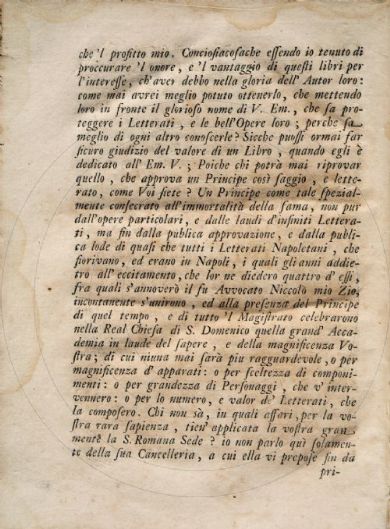 che 'l profitto mio. Conciosiacosache essendo io tenuto di
proccurare 'l onore, e 'l vantaggio di questi libri per
l'interesse, ch'aver debbo nella gloria dell' Autor loro:
come mai avrei meglio potuto ottenerlo, che mettendo
loro in fronte il glorioso nome di V. Em., che sa pro-
teggere i Letterati, e le bell'Opere loro; perche sa
meglio di ogni altro conoscerle? Sicche puossi ormai far
sicuro giudizio del valore di un Libro, quando egli è
dedicato all' Em. V.; Poiche chi potrà mai riprovar
quello, che approva un Principe così saggio, e lette-
rato, come Voi siete? Un Principe come tale spezial-
mente consecrato all'immortalità della fama, non pur
dall'opere particolari, e dalle laudi d'infiniti Lettera-
ti, ma fin dalla publica approvazione, e dalla publi-
ca lode di quasi che tutti i Letterati Napoletani, che
fiorivano, ed erano in Napoli, i quali gli anni addie-
tro all' eccitamento, che lor ne diedero quattro d' essi,
fra quali s'annoverò il fu Avvocato Niccolò mio Zio,
incontanente s'unirono, ed alla presenza del Principe
di quel tempo, e di tutto 'l Magistrato celebrarono
nella Real Chiesa di S. Domenico quella grand' Acca-
demia in laude del sapere, e della magnificenza Vo-
stra; di cui niuna mai sarà più ragguardevole, o per
magnificenza d' apparati: o per sceltezza di componi-
menti: o per grandezza di Personaggi, che v' inter-
vennero: o per lo numero, e valor de' Letterati, che
la composero. Chi non sà, in quali affari, per la vo-
stra rara sapienza, tien' applicata la vostra gran
mente la S. Romana Sede? io non parlo quì solamen-
te della sua Cancelleria, a cui ella vi prepose fin da
pri-